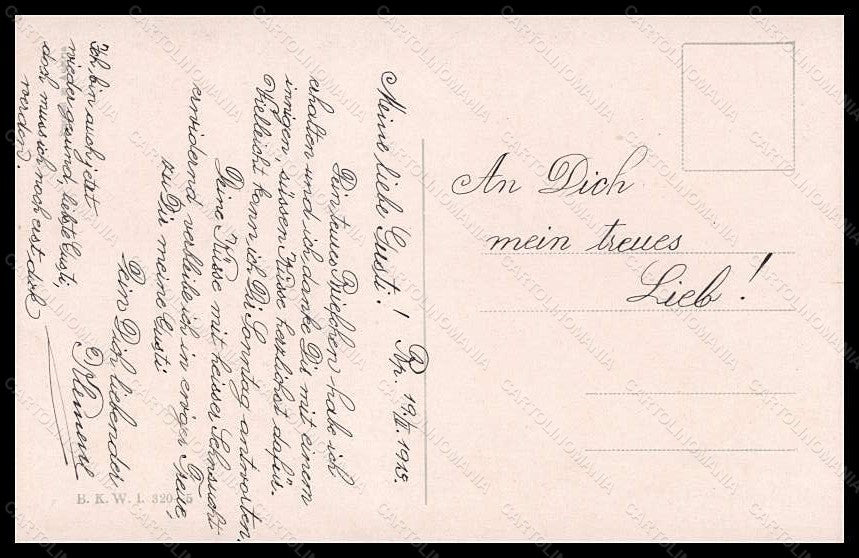 An Dich
mein treues
Lieb!
Meine liebe Gusti! Bp. 19. 1915.
Dein teures Briefchen habe ich
erhalten und ich danke Dir mit einem
innigen, süssen Kusse herzlichst dafür.
Vielleicht kann ich Dir Sonntag antworten.
Deine Küsse mit heisser Sehnsucht
erwidernd verbleibe ich in ewiger Treue,
zu Dir meine Gusti
Dein Dich liebender
Klement
Ich bin auch jetzt
wieder gesund, liebste Gusti,
doch muss ich noch erst dick
werden.
B. K. W. I. 320-5
CARTOLINOMANIA